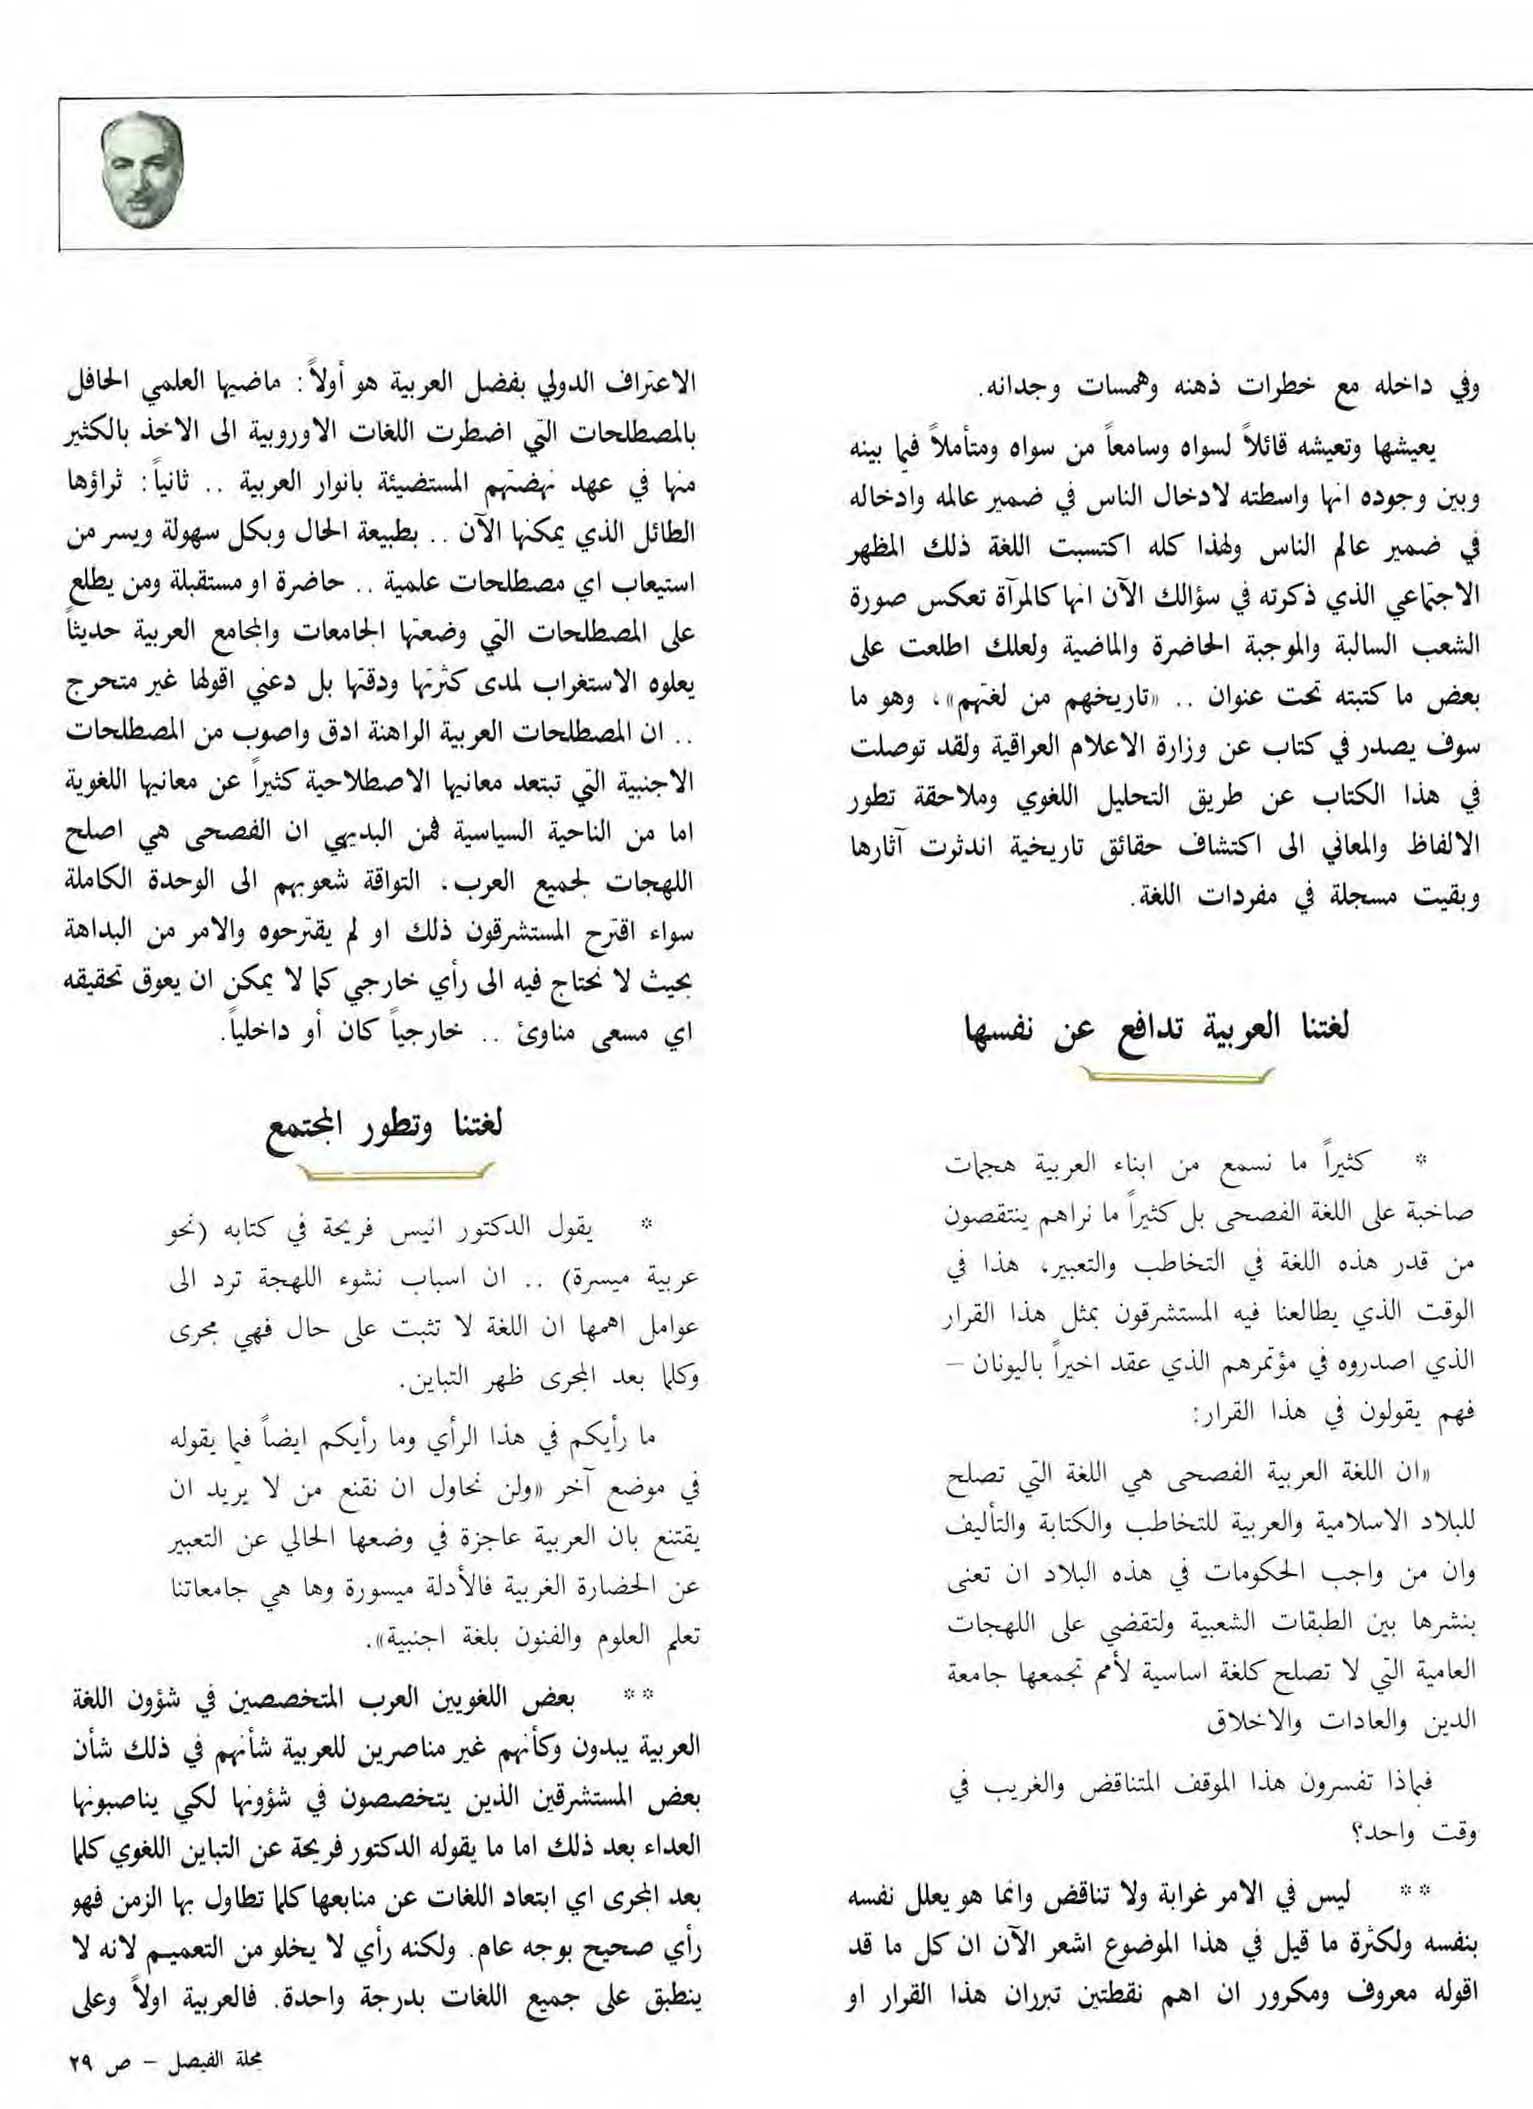 وفي داخله مع خطرات ذهنه وهمسات وجدانه.
يعيشها وتعيشه قائلاً لسواه وسامعاً من سواه ومتأملاً فيما بينه
وبين وجوده انها واسطته لادخال الناس في ضمير عالمه وادخاله
في ضمير عالم الناس ولهذا كله اكتسبت اللغة ذلك المظهر
الاجتماعي الذي ذكرته في سؤالك الآن انها كالمرآة تعكس صورة
الشعب السالبة والموجبة الحاضرة والماضية ولعلك اطلعت على
بعض ما كتبته تحت عنوان .. «تاريخهم من لغتهم»، وهو ما
سوف يصدر في كتاب عن وزارة الاعلام العراقية ولقد توصلت
في هذا الكتاب عن طريق التحليل اللغوي وملاحقة تطور
الالفاظ والمعاني الى اكتشاف حقائق تاريخية اندثرت آثارها
وبقيت مسجلة في مفردات اللغة.
لغتنا العربية تدافع عن نفسها
* كثيراً ما نسمع من ابناء العربية هجمات
صاخبة على اللغة الفصحى بل كثيراً ما نراهم ينتقصون
من قدر هذه اللغة في التخاطب والتعبير، هذا في
الوقت الذي يطالعنا فيه المستشرقون بمثل هذا القرار
الذي اصدروه في مؤتمرهم الذي عقد اخيراً باليونان –
فهم يقولون في هذا القرار:
«ان اللغة العربية الفصحى هي اللغة التي تصلح
للبلاد الاسلامية والعربية للتخاطب والكتابة والتأليف
وان من واجب الحكومات في هذه البلاد ان تعنى
بنشرها بين الطبقات الشعبية ولتقضي على اللهجات
العامية التي لا تصلح كلغة اساسية لأمم تجمعها جامعة
الدين والعادات والاخلاق
فبماذا تفسرون هذا الموقف المتناقض والغريب في
وقت واحد؟
** ليس في الامر غرابة ولا تناقض وانما هو يعلل نفسه
بنفسه ولكثرة ما قيل في هذا الموضوع اشعر الآن ان كل ما قد
اقوله معروف ومكرور ان اهم نقطتين تبرران هذا القرار او
الاعتراف الدولي بفضل العربية هو أولاً: ماضيها العلمي الحافل
بالمصطلحات التي اضطرت اللغات الاوروبية الى الاخذ بالكثير
منها في عهد نهضتهم المستضيئة بانوار العربية .. ثانياً: ثراؤها
الطائل الذي يمكنها الآن .. بطبيعة الحال وبكل سهولة ويسر من
استيعاب اي مصطلحات علمية .. حاضرة او مستقبلة ومن يطلع
على المصطلحات التي وضعتها الجامعات والمجامع العربية حديثاً
يعلوه الاستغراب لمدى كثرتها ودقتها بل دعني اقولها غير متحرج
.. ان المصطلحات العربية الراهنة ادق واصوب من المصطلحات
الاجنبية التي تبتعد معانيها الاصطلاحية كثيراً عن معانيها اللغوية
اما من الناحية السياسية فمن البديهي ان الفصحى هي اصلح
اللهجات لجميع العرب، التواقة شعوبهم الى الوحدة الكاملة
سواء اقترح المستشرقون ذلك او لم يقترحوه والامر من البداهة
بحيث لا نحتاج فيه الى رأي خارجي كما لا يمكن ان يعوق تحقيقه
اي مسعى مناوئ .. خارجياً كان أو داخلياً.
لغتنا وتطور المجتمع
* يقول الدكتور انيس فريحة في كتابه (نحو
عربية ميسرة) .. ان اسباب نشوء اللهجة ترد الى
عوامل اهمها ان اللغة لا تثبت على حال فهي مجرى
وكلما بعد المجرى ظهر التباين.
ما رأيكم في هذا الرأي وما رأيكم ايضاً فيما يقوله
في موضع آخر «ولن نحاول ان نقنع من لا يريد ان
يقتنع بان العربية عاجزة في وضعها الحالي عن التعبير
عن الحضارة الغربية فالأدلة ميسورة وها هي جامعاتنا
تعلم العلوم والفنون بلغة اجنبية».
** بعض اللغويين العرب المتخصصين في شؤون اللغة
العربية يبدون وكأنهم غير مناصرين للعربية شأنهم في ذلك شأن
بعض المستشرقين الذين يتخصصون في شؤونها لكي يناصبونها
العداء بعد ذلك اما ما يقوله الدكتور فريحة عن التباين اللغوي كلما
بعد المجرى اي ابتعاد اللغات عن منابعها كلما تطاول بها الزمن فهو
رأي صحيح بوجه عام. ولكنه رأي لا يخلو من التعميم لانه لا
ينطبق على جميع اللغات بدرجة واحدة. فالعربية اولاً وعلى
مجلة الفيصل – ص ٢٩